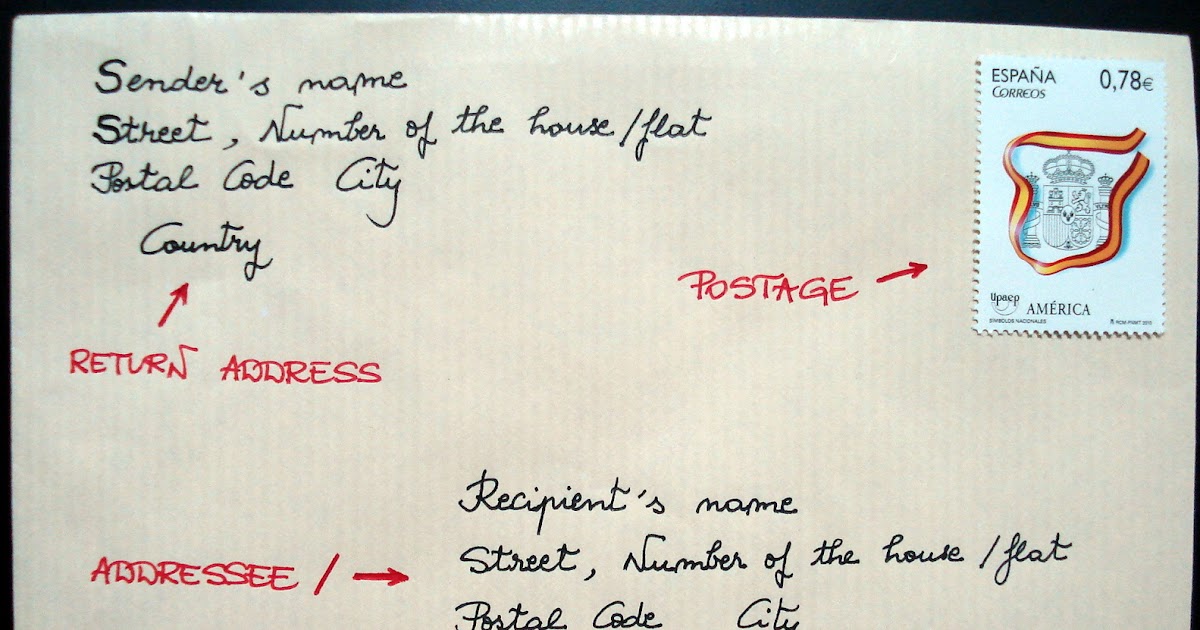 Sender's name
Street, Number of the house/flat
Postal Code City
Country
RETURN ADDRESS
POSTAGE
ESPAÑA 0,78€
CORREOS
upaep AMÉRICA
SÍMBOLOS NACIONALES RCM-FNMT 2010
Recipient's name
Street, Number of the house/flat
ADDRESSEE /
Postal Code City